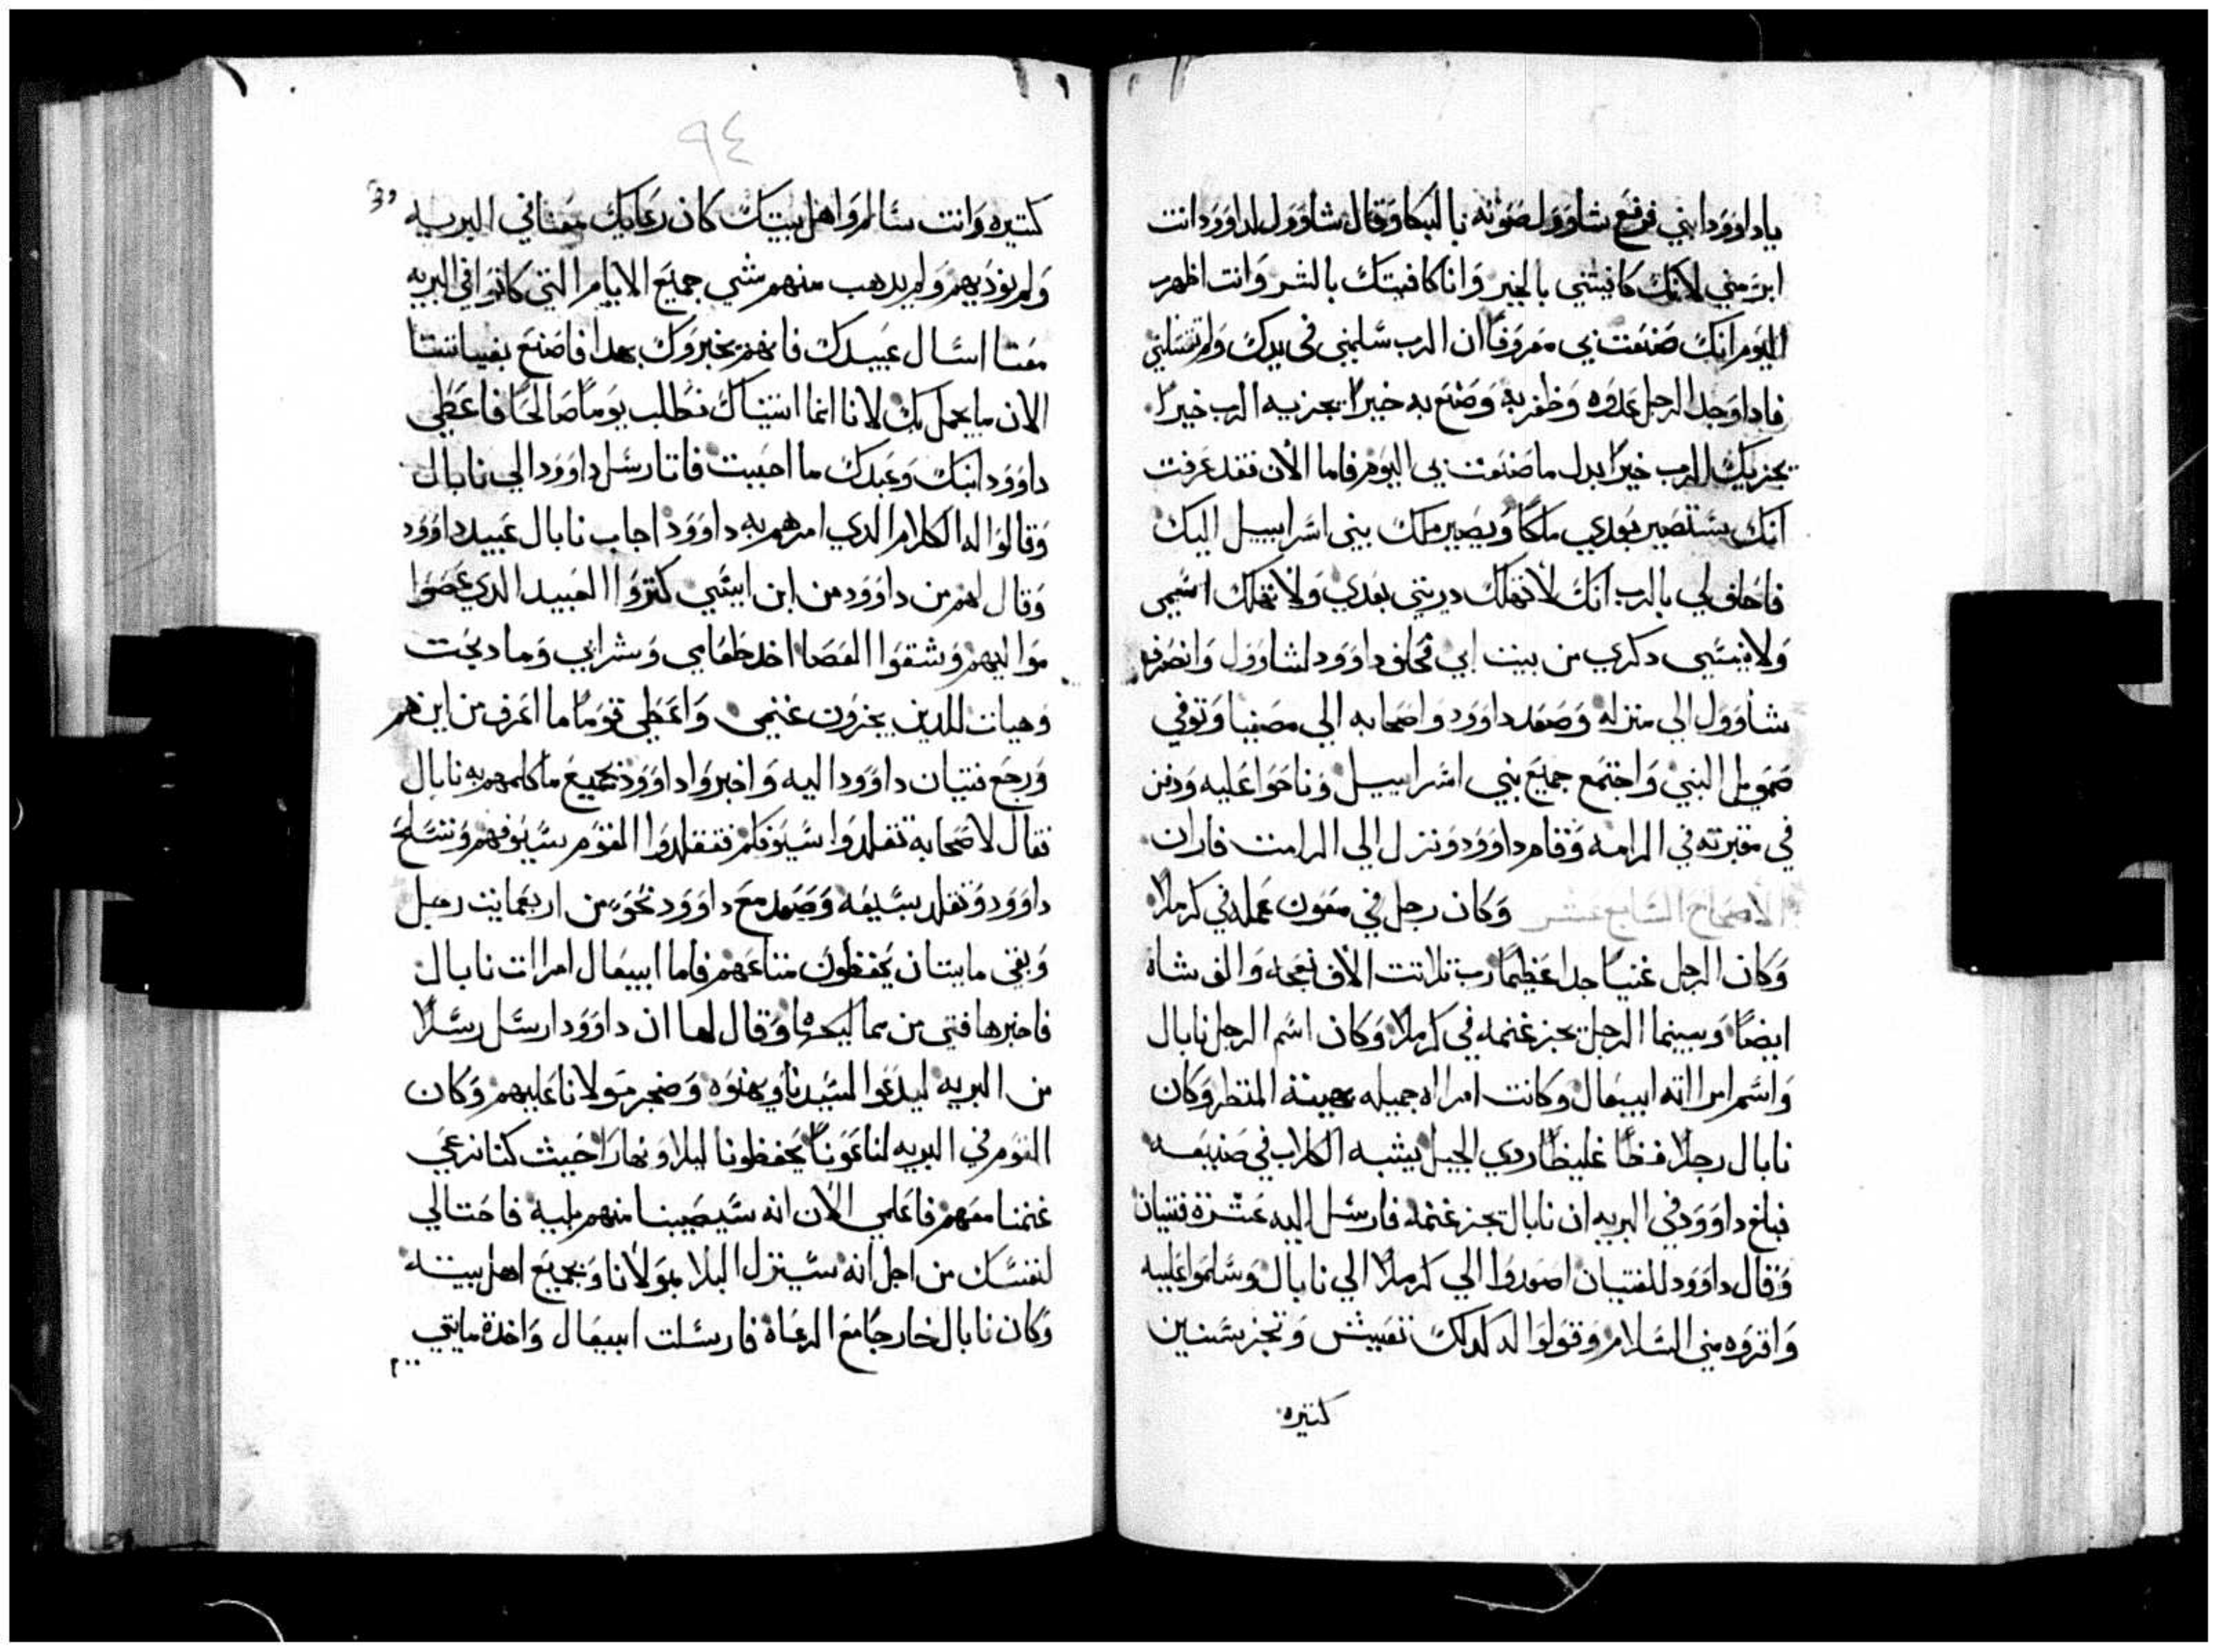 ياداوود ابني فرفع شاوول صوته بالبكا وقال شاوول لداوود انت
ابر مني لانك كافيتني بالخير وانا كافيتك بالشر وانت اظهرت
اليوم انك صنعت بي معروفا ان الرب سلمني في يدك ولم تقتلني
فادا وجد الرجل عدوه وظفر به وصنع به خيرا يجزيه الرب خيرا
يجزيك الرب خيرا بدل ما صنعت بي اليوم فاما الان فقد عرفت
انك ستصير بعدي ملكا ويصير ملك بني اسراييل اليك
فاحلف لي بالرب انك لا تهلك دريتي بعدي ولا تهلك اسمي
ولا ينسي دكري من بيت ابي فحلف داوود لشاوول وانصرف
شاوول الي منزله وصعد داوود واصحابه الي مصفيا وتوفي
صمويل النبي واجتمع جميع بني اسراييل وناحوا عليه ودفن
في مقبرته في الرامه وقام داوود ونزل الي الرامت فاران
الاصحاح السابع عشر وكان رجل في معون عمله في كرملا
وكان الرجل غنيا جدا عظيما رب تلاتت الاف نعجه والف شاه
ايضا وبينما الرجل يجز غنمه في كرملا وكان اسم الرجل نابال
واسم امراته ابيغال وكانت امراه جميله بهيئة المنظر وكان
نابال رجلا فظا غليظا ردي الجيل يشبه الكلاب في صنيعه
فبلغ داوود في البريه ان نابال يجز غنمه فارسل اليه عشرة فتيان
وقال داوود للفتيان اصعدوا الي كرملا الي نابال وسلموا عليه
واقروه مني السلام وقولوا له كدلك تعييش وتجز سنين
كتيره
٩٤
كتيره وانت سالم واهل بيتك كان رعايك معنا في البريه
ولم نوديهم ولم يدهب منهم شي جميع الايام التي كانوا في البريه
معنا اسال عبيدك فانهم يخبروك بهدا فاصنع بفيياننا
الان ما يجمل بك لاننا انما اتيناك نطلب يوما صالحا فاعطي
داوود ابنك وعبدك ما احببت فاتا رسل داوود الي نابال
وقالوا له الكلام الدي امرهم به داوود اجاب نابال عبيد داوود
وقال لهم من داوود من ابن ايشي كتروا العبيد الدي عصوا
مواليهم وشقوا العصا اخد طعامي وشرابي وما دبحت
وهيات للدين يجزون غنمي واعطي قوما ما اعرف من اين هم
ورجع فتيان داوود اليه واخبروا داوود بجميع ما كلمهم به نابال
فقال لاصحابه تقلدوا سيوفكم فتقلدوا القوم سيوفهم وتسلح
داوود وتقلد بسيفه وصعد مع داوود نحو من اربعمايت رجل
وبقي مايتان يحفظون متاعهم فاما ابيغال امرات نابال
فاخبرها فتي من مماليكها وقال لها ان داوود ارسل رسلا
من البريه ليدعوا لسيدنا ويهنوه وضجر مولانا عليهم وكان
القوم في البريه لنا عونا يحفظونا ليلا ونهارا حيث كنا نرعي
غنمنا معهم فاعلمي الان انه سيصيبنا منهم بليه فاحتالي
لنفسك من اجل انه سينزل البلا بمولانا وبجميع اهل بيته
وكان نابال خارجا مع الرعاة فارسلت ابيغال واخدة مايتي